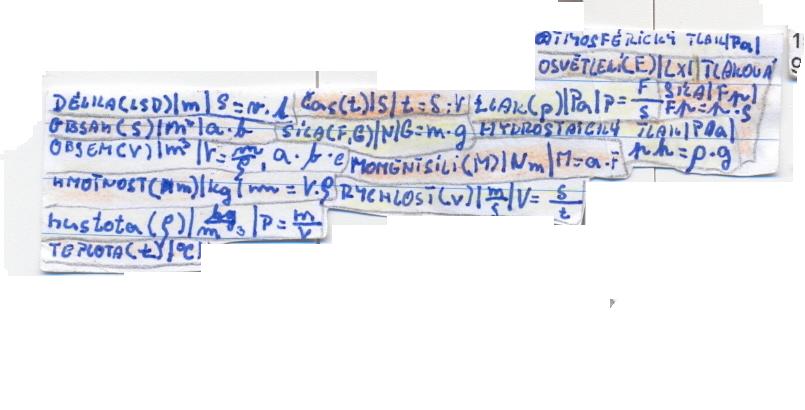 ATMOSFÉRICKÝ TLAK|Pa|
OSVĚTLENÍ(E)|LX| TLAKOVÁ
SÍLA|F
DÉLKA(LSD)|m|S=v.t čas(t)|S|t=S:V tLAK(p)|Pa|P=F/S
OBSAH(S)|m²|a.b SÍLA(F,G)|N|G=m.g HYDROSTATICKÝ TLAK|Pa|
OBJEM(V)|m³|V=m/ρ, a.b.c MOMENTSÍLI(M)|Nm|M=a.F ph=ρ.g
HMOTNOST(m)|kg|m=V.ρ RYCHLOST(v)|m/s|V=s/t
hustota(ρ)|kg/m3|P=m/V
TEPLOTA(t)|°C|